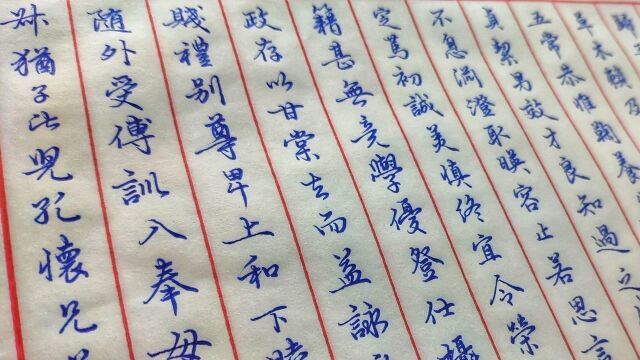 歸
草木賴及
五常恭惟鞠養
貞絜男效才良知過必
不息淵澄取暎容止若思言
定篤初誠美慎終宜令榮
籍甚無竟學優登仕攝
政存以甘棠去而益詠
賤禮別尊卑上和下睦
隨外受傅訓入奉母
叔猶子比兒孔懷兄